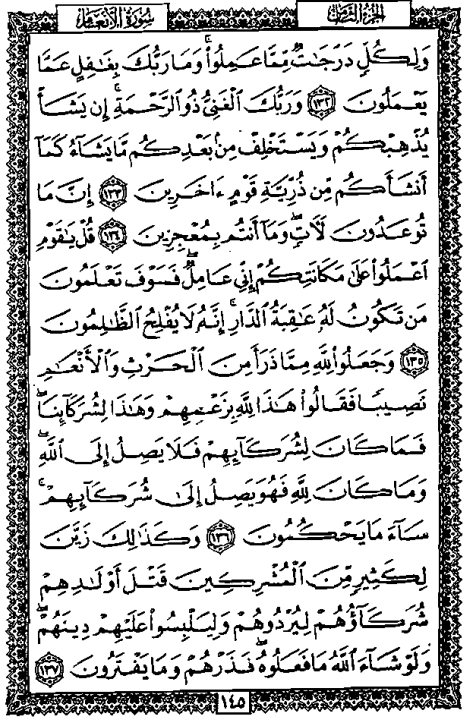 الجزء الثامن سورة الأنعام
وَلِكُلٍّ دَرَجَٰتٌ مِّمَّا عَمِلُوا۟ ۚ وَمَا رَبُّكَ بِغَٰفِلٍ عَمَّا
يَعْمَلُونَ ١٣٢ وَرَبُّكَ ٱلْغَنِىُّ ذُو ٱلرَّحْمَةِ ۚ إِن يَشَأْ
يُذْهِبْكُمْ وَيَسْتَخْلِفْ مِنۢ بَعْدِكُم مَّا يَشَآءُ كَمَآ
أَنشَأَكُم مِّن ذُرِّيَّةِ قَوْمٍ ءَاخَرِينَ ١٣٣ إِنَّ مَا
تُوعَدُونَ لَءَاتٍ ۖ وَمَآ أَنتُم بِمُعْجِزِينَ ١٣٤ قُلْ يَٰقَوْمِ
ٱعْمَلُوا۟ عَلَىٰ مَكَانَتِكُمْ إِنِّى عَامِلٌ ۖ فَسَوْفَ تَعْلَمُونَ
مَن تَكُونُ لَهُۥ عَٰقِبَةُ ٱلدَّارِ ۗ إِنَّهُۥ لَا يُفْلِحُ ٱلظَّٰلِمُونَ
١٣٥ وَجَعَلُوا۟ لِلَّهِ مِمَّا ذَرَأَ مِنَ ٱلْحَرْثِ وَٱلْأَنْعَٰمِ
نَصِيبًا فَقَالُوا۟ هَٰذَا لِلَّهِ بِزَعْمِهِمْ وَهَٰذَا لِشُرَكَآئِنَا ۖ
فَمَا كَانَ لِشُرَكَآئِهِمْ فَلَا يَصِلُ إِلَى ٱللَّهِ ۖ
وَمَا كَانَ لِلَّهِ فَهُوَ يَصِلُ إِلَىٰ شُرَكَآئِهِمْ ۗ
سَآءَ مَا يَحْكُمُونَ ١٣٦ وَكَذَٰلِكَ زَيَّنَ
لِكَثِيرٍ مِّنَ ٱلْمُشْرِكِينَ قَتْلَ أَوْلَٰدِهِمْ
شُرَكَآؤُهُمْ لِيُرْدُوهُمْ وَلِيَلْبِسُوا۟ عَلَيْهِمْ دِينَهُمْ ۖ
وَلَوْ شَآءَ ٱللَّهُ مَا فَعَلُوهُ ۖ فَذَرْهُمْ وَمَا يَفْتَرُونَ ١٣٧
١٤٥